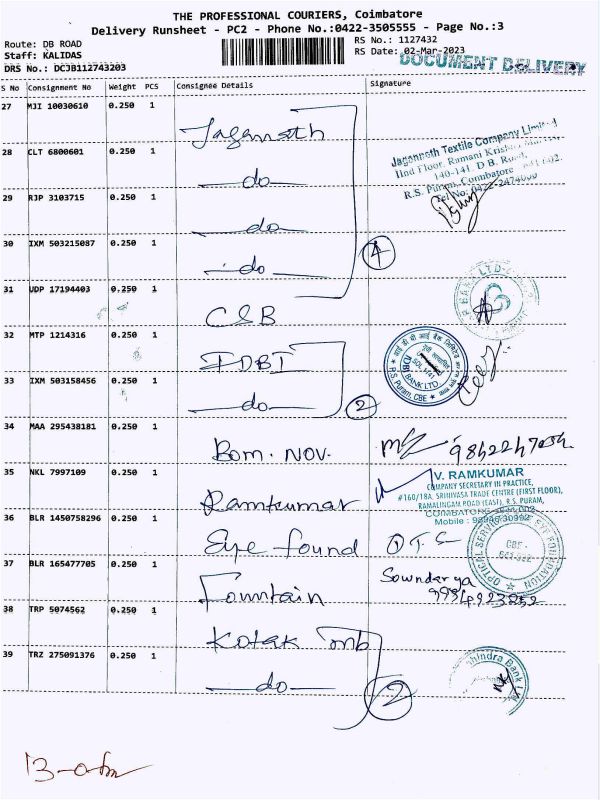 THE PROFESSIONAL COURIERS, Coimbatore
Delivery Runsheet - PC2 - Phone No.:0422-3505555 - Page No.:3
Route: DB ROAD
RS No.: 1127432
Staff: KALIDAS
RS Date: 02-Mar-2023
DOCUMENT DELIVERY
DRS No.: DCJB112743203
S No Consignment No Weight PCS Consignee Details Signature
27 MJI 10030610 0.250 1 Jagannath
28 CLT 6800601 0.250 1 do
Jagannath Textile Company Limited
IInd Floor, Ramani
140-141, D.B. Road,
R.S. Puram, Coimbatore
Tel No: 0422-2474
29 RJP 3103715 0.250 1 do
30 IXM 503215087 0.250 1 do
4
31 UDP 17194403 0.250 1 CSB
BANK LTD
32 MTP 1214316 0.250 1 IDBI
आई डी बी आई बैंक लिमिटेड
IDBI BANK LTD.
R.S. Puram, CBE
33 IXM 503158456 0.250 1 do
2
34 MAA 295438181 0.250 1 Bom. NOV.
35 NKL 7997109 0.250 1 Ramkumar
V. RAMKUMAR
COMPANY SECRETARY IN PRACTICE,
#160/18A, SRINIVASA TRADE CENTRE (FIRST FLOOR),
RAMALINGAM ROAD (EAST), R.S. PURAM,
COIMBATORE
Mobile : 98940 30992
36 BLR 1450758296 0.250 1 Eye found
OPTICAL SERVICES EYE FOUNDATION
CBE
37 BLR 165477705 0.250 1 Fountain
Sowndarya
38 TRP 5074562 0.250 1 Kotak mb
39 TRZ 275091376 0.250 1 do
2
Mahindra Bank Ltd